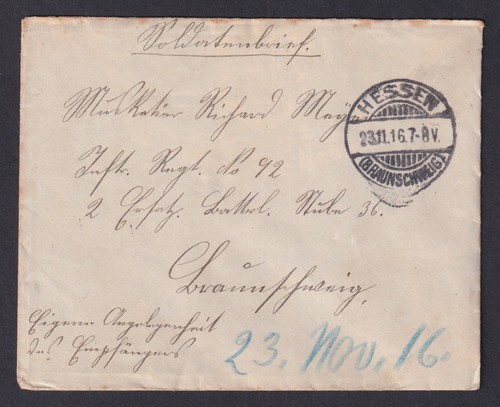 Soldatenbrief.
Musketier Richard Meyer
HESSEN
23.11.16.7-8V.
(BRAUNSCHWEIG)
Inftr. Regt. No 92
2 Ersatz. Battel. Stube 36.
Braunschweig,
Eigene Angelegenheit
des Empfängers
23. Nov. 16.